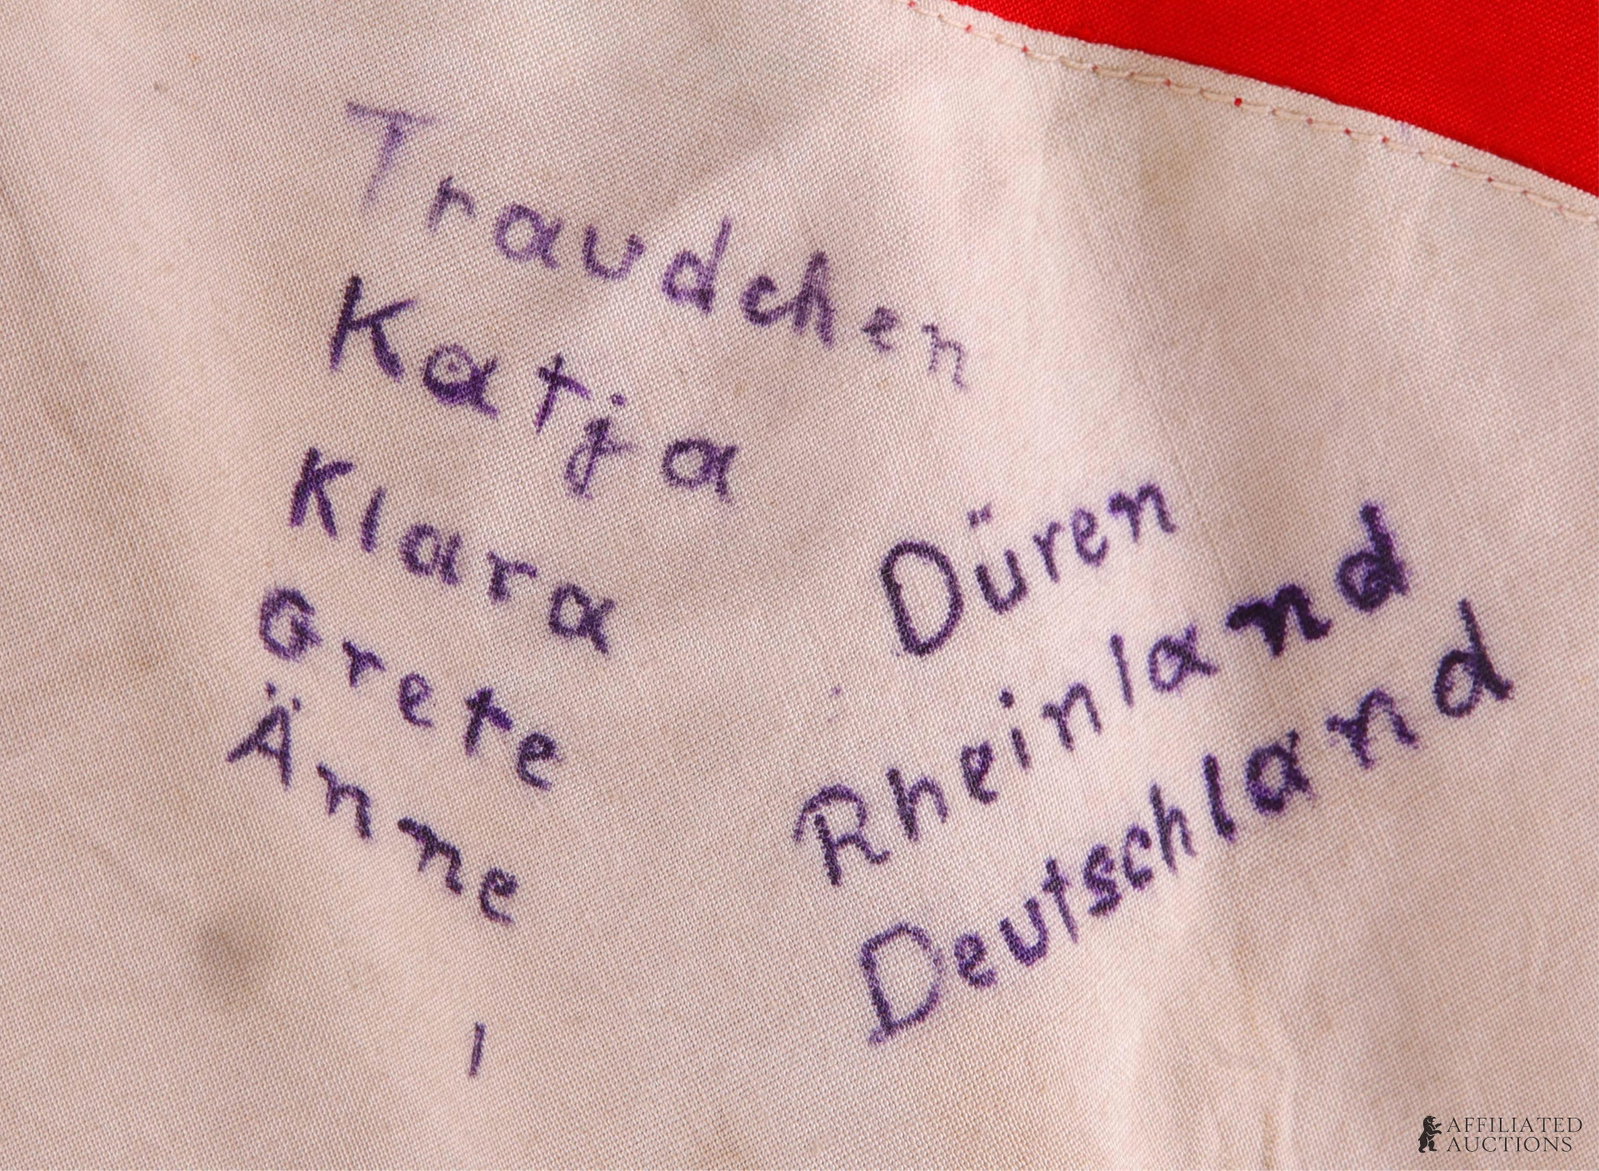 Traudchen
Katja
Klara
Grete
Änne
Düren
Rheinland
Deutschland
AFFILIATED
AUCTIONS